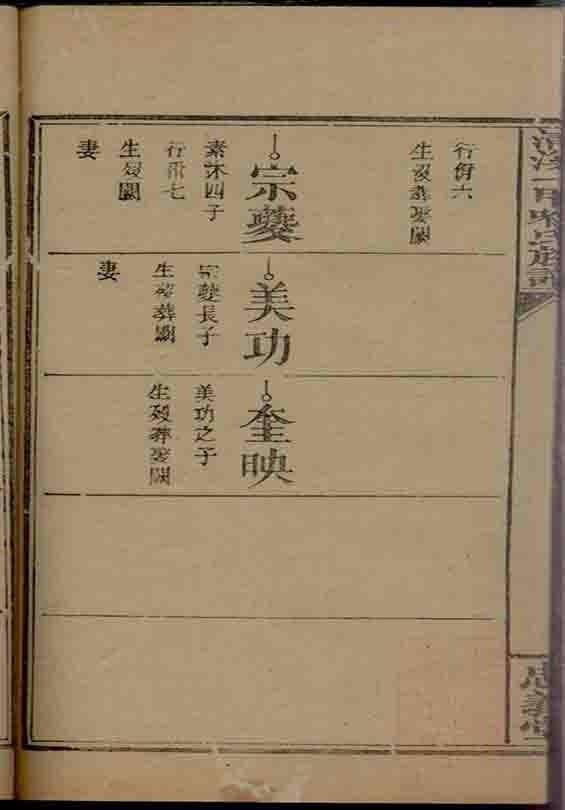 氏族譜
忠義堂
生歿葬娶闕
宗夔
素沐四子
行卅七
生歿闕
妻
美功
宗夔長子
生歿葬闕
妻
奎映
美功之子
生歿葬娶闕